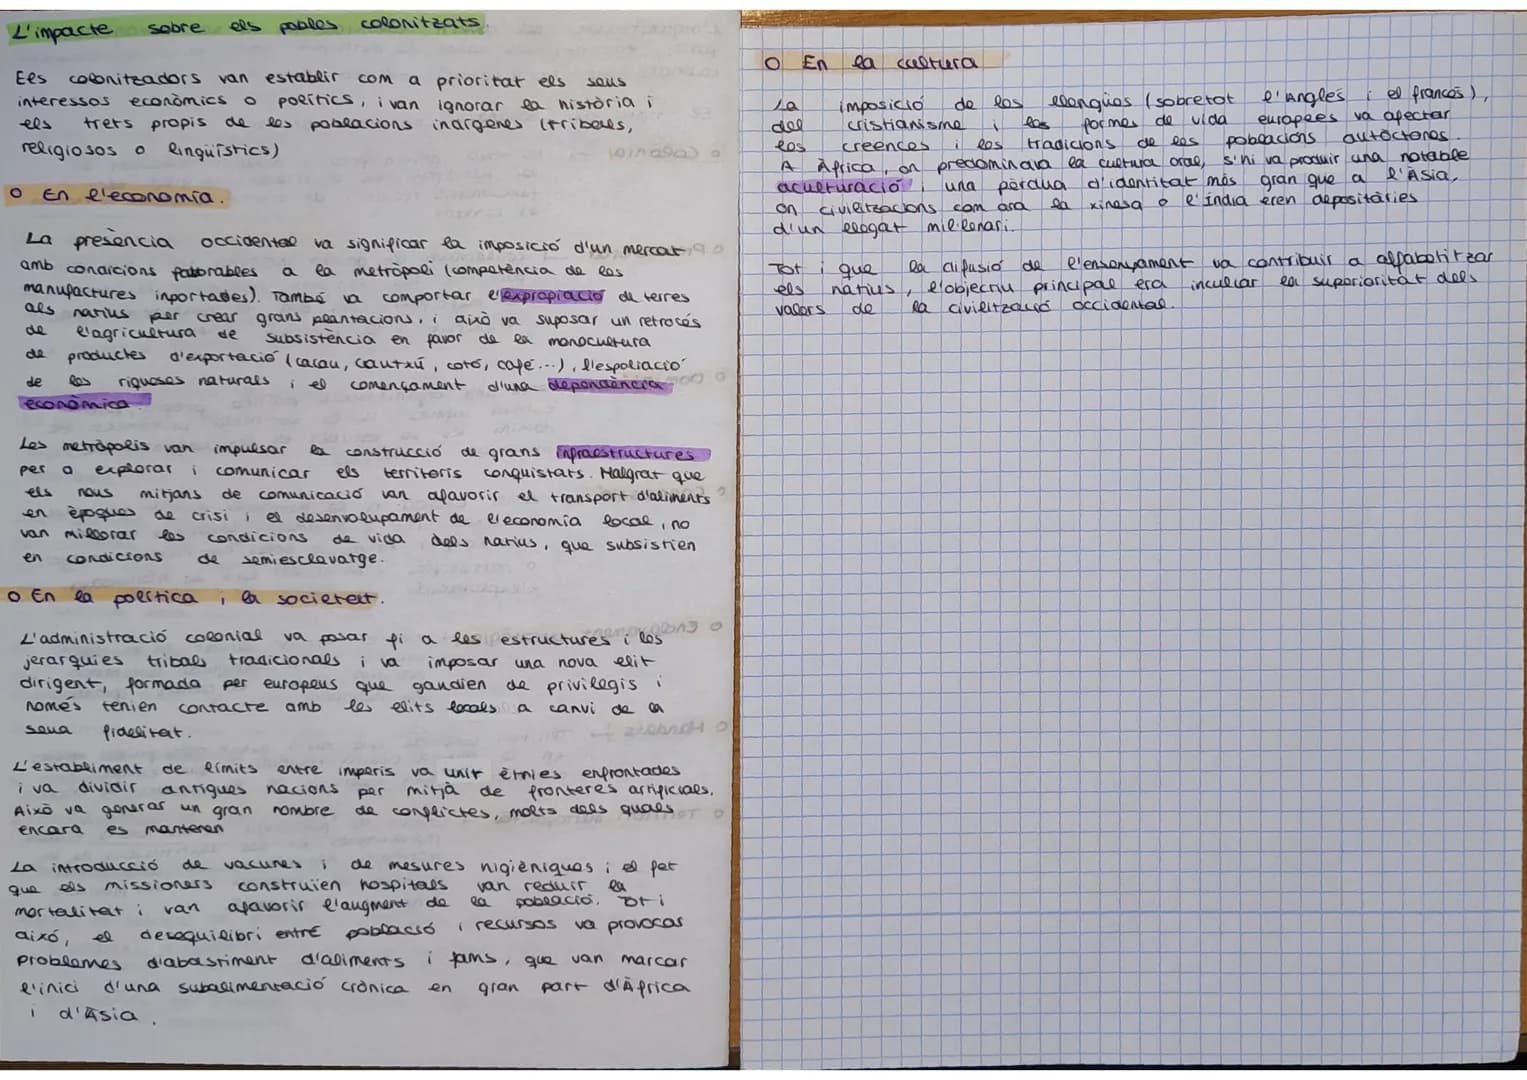 L'impacte sobre els pobles colonitzats.
Els colonitzadors van establir com a prioritat els seus
interessos econòmics o polítics, i van ignorar la història i
els trets propis de les poblacions indígenes (tribals,
religiosos o lingüístics)
o En l'economia.
La presència occidental va significar la imposició d'un mercat
amb condicions favorables a la metròpoli (competència de les
manufactures inportades). També va comportar l'expropiació de terres
als natius per crear grans plantacions, i això va suposar un retrocés
de l'agricultura de subsistència en favor de la monocultura
de productes d'exportació (cacau, cautxú, cotó, cafè...), l'espoliació
de les riqueses naturals i el començament d'una dependència
econòmica.
Les metròpolis van impulsar la construcció de grans infraestructures
per a explorar i comunicar els territoris conquistats. Malgrat que
els nous mitjans de comunicació van afavorir el transport d'aliments
en èpoques de crisi i el desenvolupament de l'economia local, no
van millorar les condicions de vida dels natius, que subsistien
en condicions de semiesclavatge.
o En la política i la societat.
L'administració colonial va posar fi a les estructures i les
jerarquies tribals tradicionals i va imposar una nova elit
dirigent, formada per europeus que gaudien de privilegis i
només tenien contacte amb les elits locals a canvi de la
seua fidelitat.
L'establiment de límits entre imperis va unir ètnies enfrontades
i va dividir antigues nacions per mitjà de fronteres artificials.
Això va generar un gran nombre de conflictes, molts dels quals
encara es mantenen
La introducció de vacunes i de mesures higièniques i el fet
que els missioners construïen hospitals van reduir la
mortalitat i van afavorir l'augment de la població. Tot i
això, el desequilibri entre població i recursos va provocar
problemes d'abastiment d'aliments i fams, que van marcar
l'inici d'una subalimentació crònica en gran part d'Àfrica
i d'Àsia.
o En la cultura
La imposició de les llengües (sobretot l'anglés i el francés),
del cristianisme i les formes de vida europees va afectar
les creences i les tradicions de les poblacions autòctones.
A Àfrica, on predominava la cultura oral, s'hi va produir una notable
aculturació i una pèrdua d'identitat més gran que a l'Àsia,
on civilitzacions com ara la xinesa o l'índia eren depositàries
d'un llegat mil·lenari.
Tot i que la difusió de l'ensenyament va contribuir a alfabetitzar
els natius, l'objectiu principal era inculcar la superioritat dels
valors de la civilització occidental.